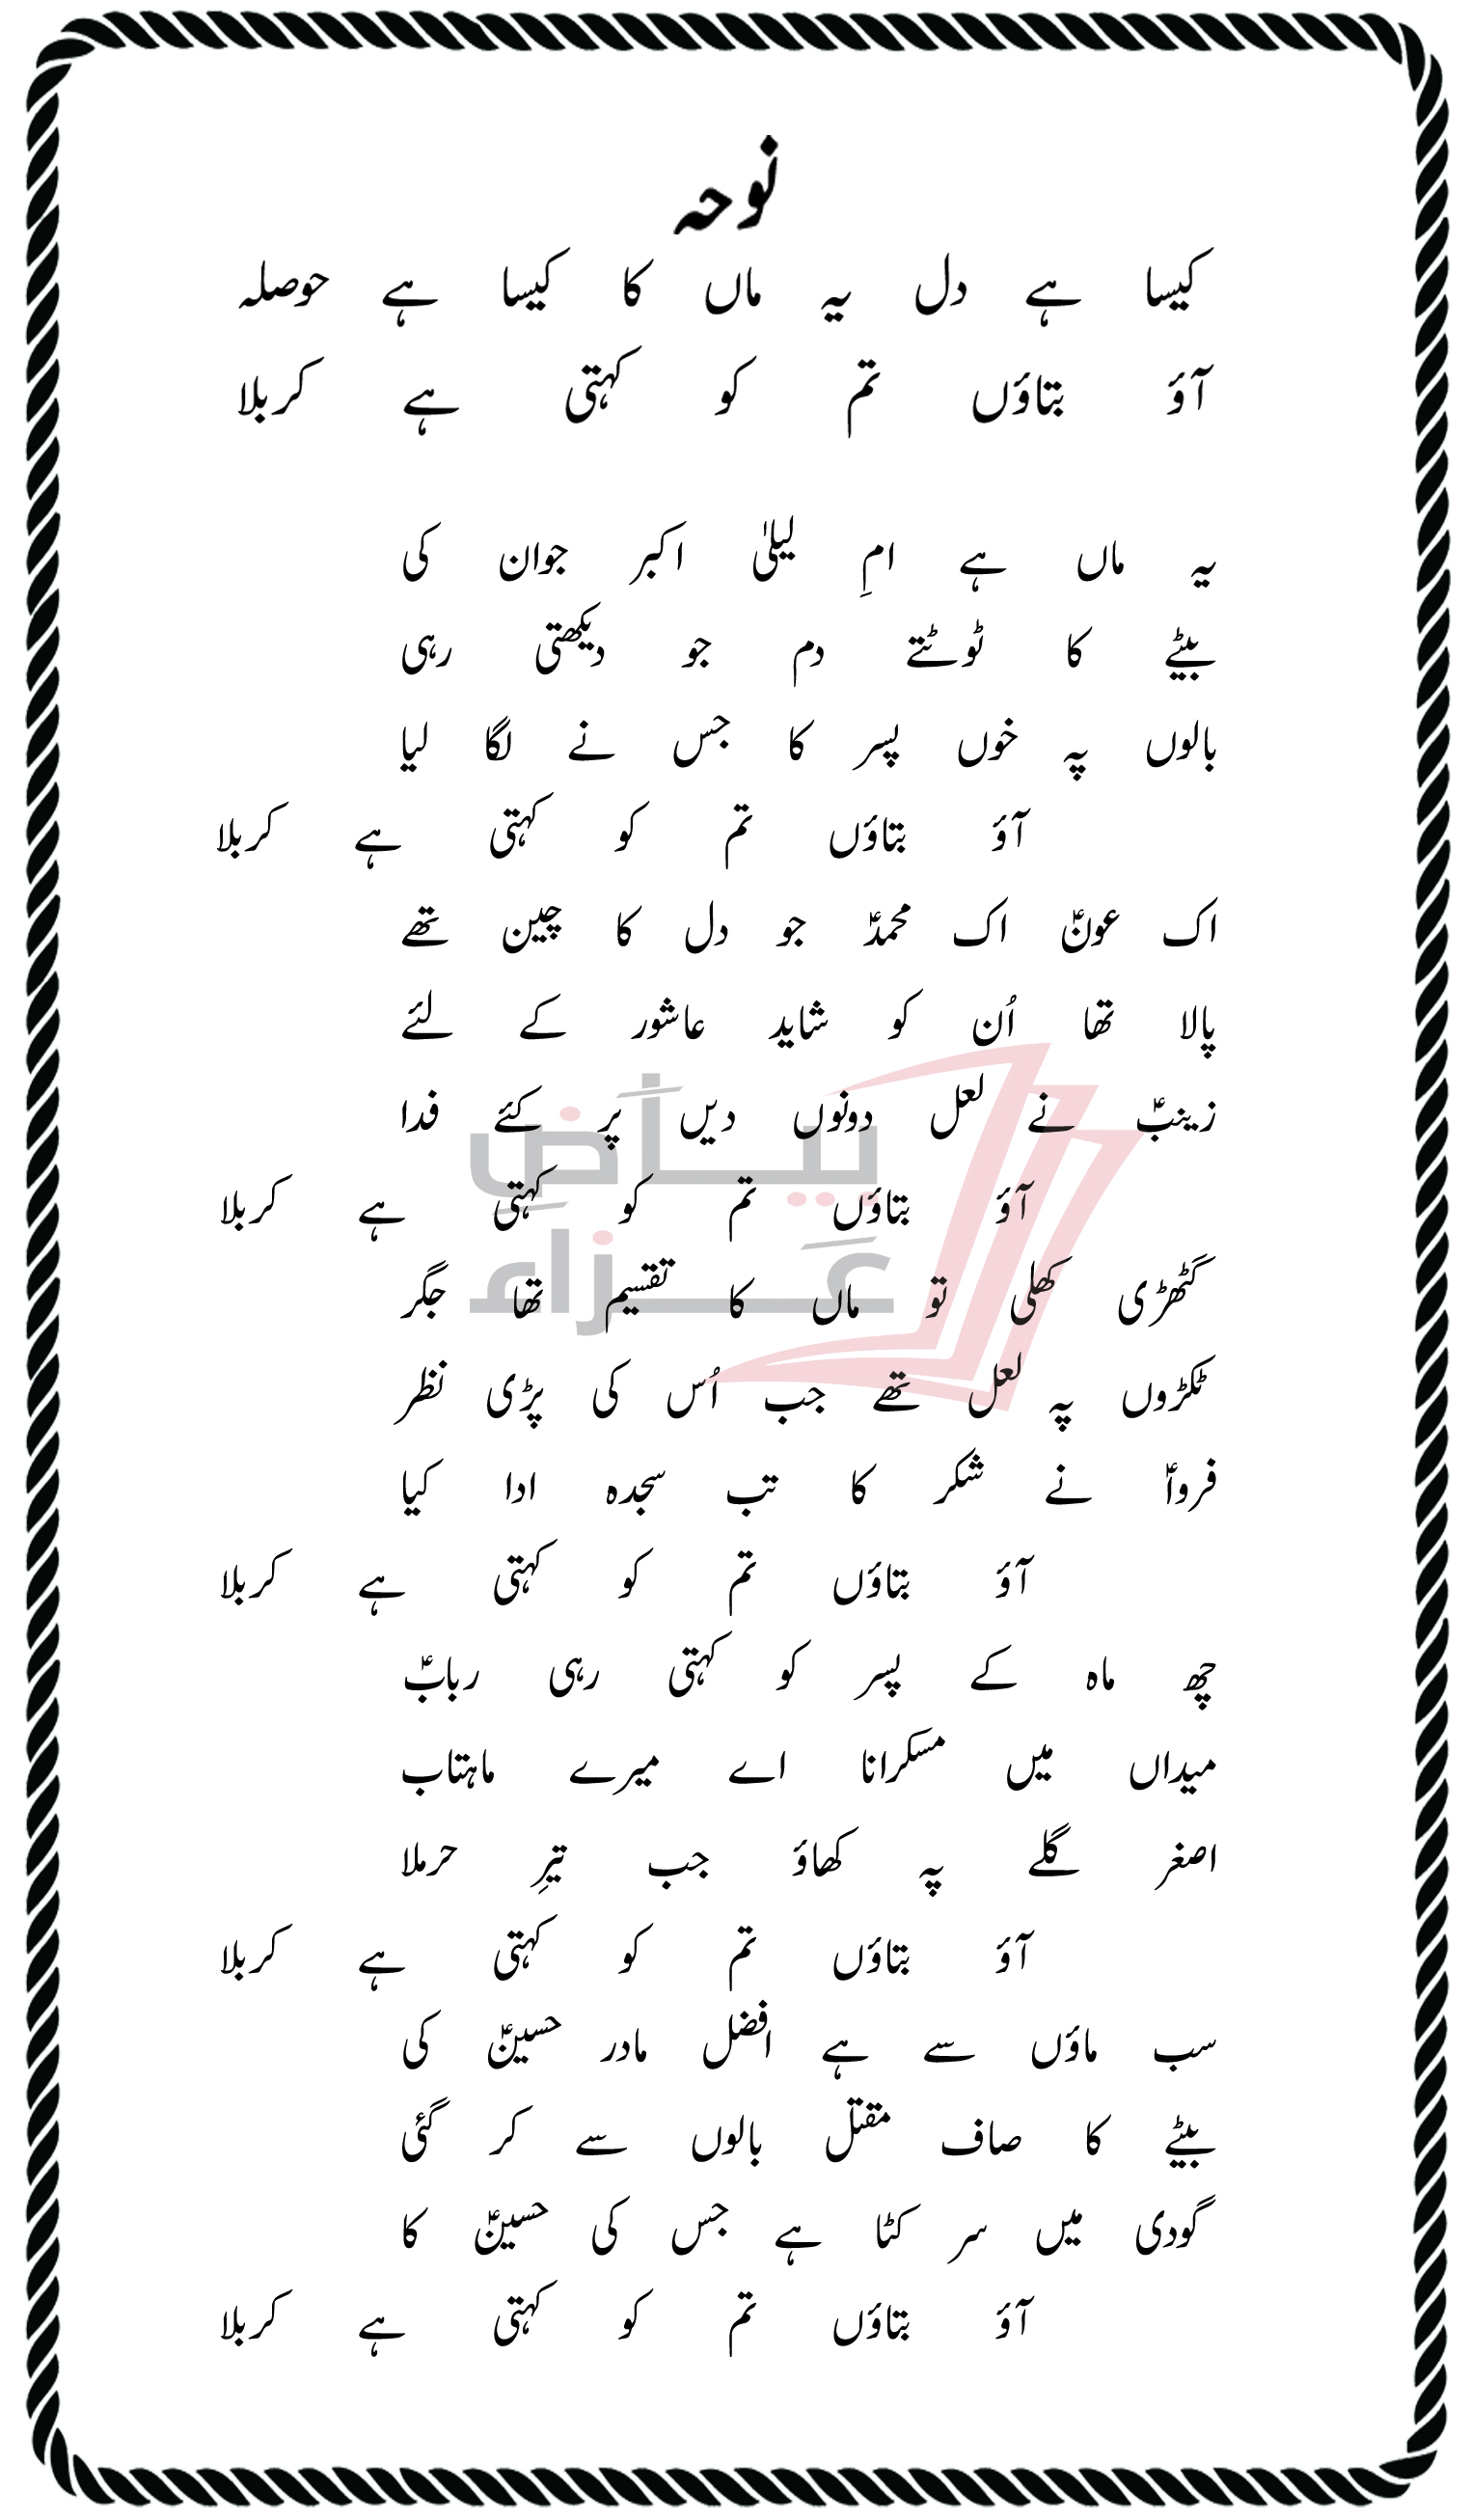 نوحہ
کیسا ہے دل یہ ماں کا کیسا ہے حوصلہ
آؤ بتاؤں تم کو کہتی ہے کربلا
یہ ماں ہے امِ لیلیٰ اکبر جوان کی
بیٹے کا ٹوٹتے دم جو دیکھتی رہی
بالوں پہ خوں پسر کا جس نے لگا لیا
آؤ بتاؤں تم کو کہتی ہے کربلا
اک عونؑ اک محمدؑ جو دل کا چین تھے
پالا تھا اُن کو شاید عاشور کے لئے
زینبؑ نے لعل دونوں دیں پر کئے فدا
آؤ بتاؤں تم کو کہتی ہے کربلا
بیاضِ
عزاء
گٹھڑی کھلی تو ماں کا تقسیم تھا جگر
ٹکڑوں پہ لعل تھے جب اُس کی پڑی نظر
فرواؑ نے شکر کا تب سجدہ ادا کیا
آؤ بتاؤں تم کو کہتی ہے کربلا
چھ ماہ کے پسر کو کہتی رہی ربابؑ
میداں میں مسکرانا اے میرے ماہتاب
اصغر گلے پہ کھاؤ جب تیرِ حرملا
آؤ بتاؤں تم کو کہتی ہے کربلا
سب ماؤں سے ہے افضل مادر حسینؑ کی
بیٹے کا صاف مقتل بالوں سے کر گئی
گودی میں سر کٹا ہے جس کی حسینؑ کا
آؤ بتاؤں تم کو کہتی ہے کربلا